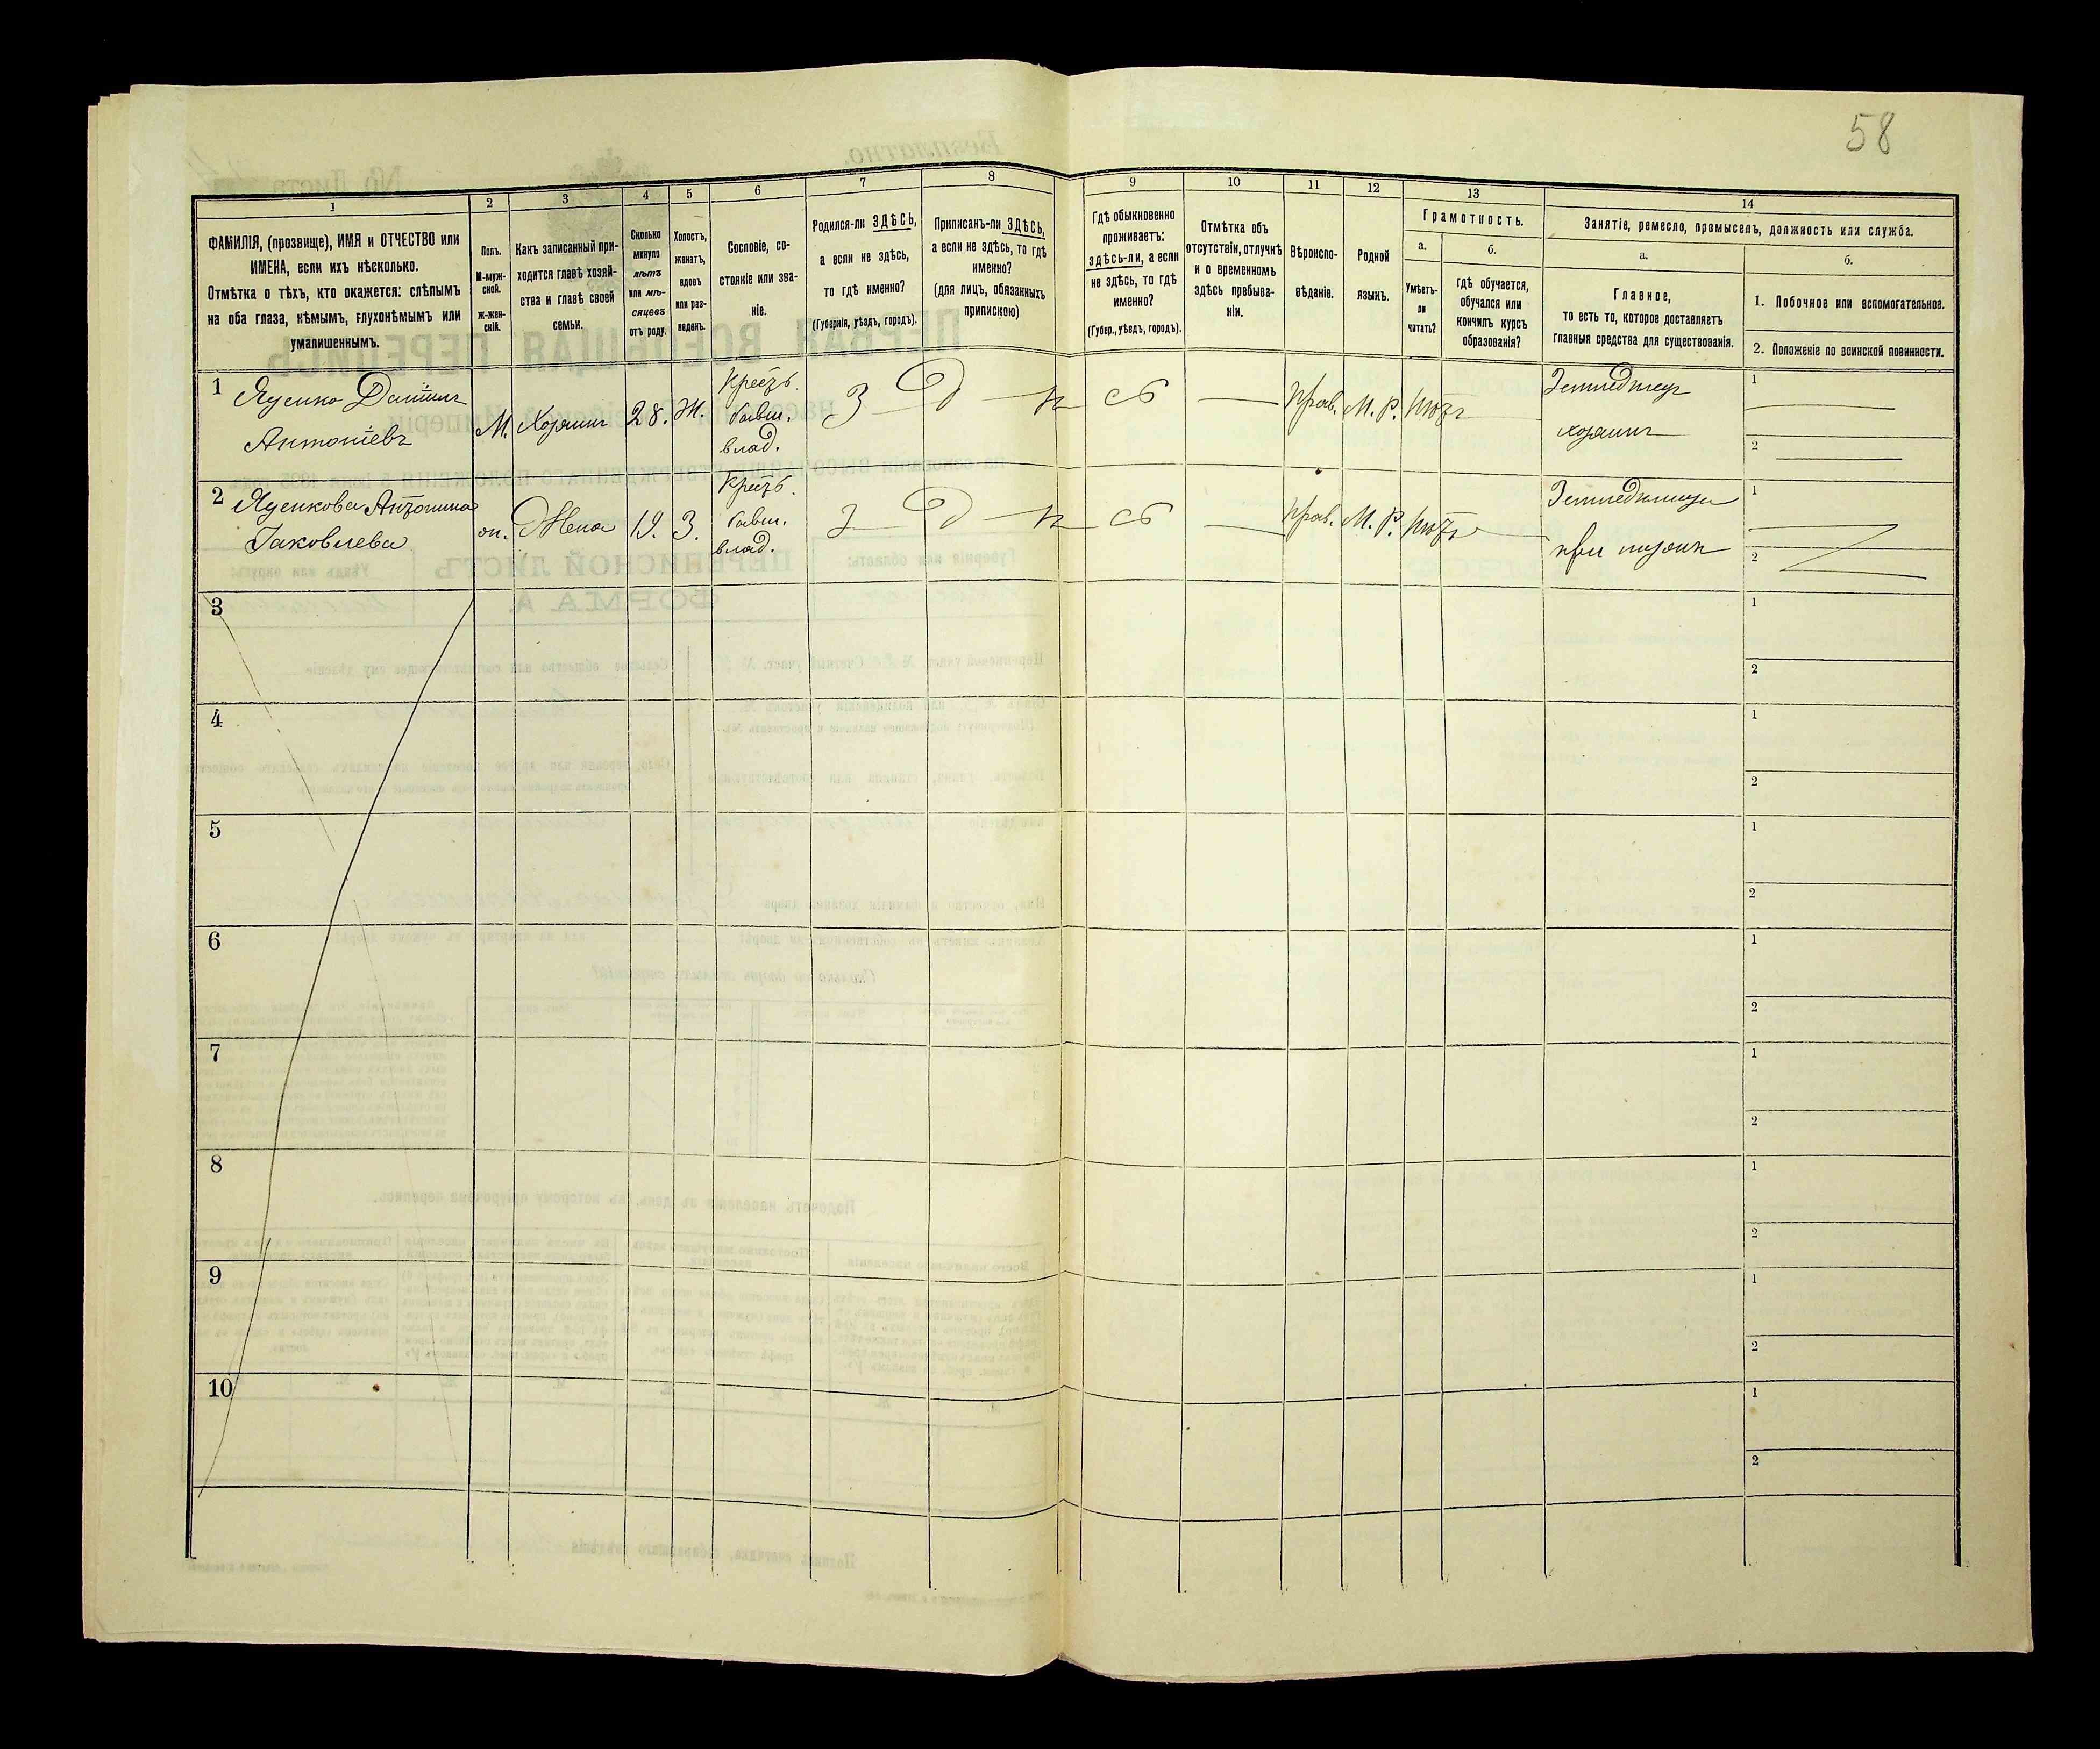 58
1 2 3 4 5 6 7 8 9 10 11 12 13 14
ФАМИЛІЯ, (прозвище), ИМЯ и ОТЧЕСТВО или
ИМЕНА, если ихъ нѣсколько.
Отмѣтка о тѣхъ, кто окажется: слѣпымъ
на оба глаза, нѣмымъ, глухонѣмымъ или
умалишеннымъ.
Полъ.
М-муж-
ской.
ж-жен-
скій.
Какъ записанный при-
ходится главѣ хозяй-
ства и главѣ своей
семьи.
Сколько
минуло
лѣтъ
или мѣ-
сяцевъ
отъ роду.
Холостъ,
женатъ,
вдовъ
или раз-
веденъ.
Сословіе, со-
стояніе или зва-
ніе.
Родился-ли ЗДѢСЬ,
а если не здѣсь,
то гдѣ именно?
(Губернія, уѣздъ, городъ).
Приписанъ-ли ЗДѢСЬ,
а если не здѣсь, то гдѣ
именно?
(для лицъ, обязанныхъ
припискою)
Гдѣ обыкновенно
проживаетъ:
здѣсь-ли, а если
не здѣсь, то гдѣ
именно?
(Губер., уѣздъ, городъ).
Отмѣтка объ
отсутствіи, отлучкѣ
и о временномъ
здѣсь пребыва-
ніи.
Вѣроиспо-
вѣданіе.
Родной
языкъ.
Грамотность.
а.
Умѣетъ-
ли
читать?
б.
гдѣ обучается,
обучался или
кончилъ курсъ
образованія?
Занятіе, ремесло, промыселъ, должность или служба.
а.
Главное,
то есть то, которое доставляетъ
главныя средства для существованія.
б.
1. Побочное или вспомогательное.
2. Положеніе по воинской повинности.
1 Яценко Даніилъ
Антоніевъ
М. Хозяинъ 28. Ж.
Крестъ.
бывш.
влад.
З д ѣ с ь
Прав. М. Р. Нѣтъ
Земледѣлецъ
хозяинъ
1
2
2 Яценкова Антонина
Іаковлева
ж. Жена 19. З.
Крестъ.
бывш.
влад.
З д ѣ с ь
Прав. М. Р. Нѣтъ
Земледѣлица
при мужѣ
1
2
3
1
2
4
1
2
5
1
2
6
1
2
7
1
2
8
1
2
9
1
2
10
1
2